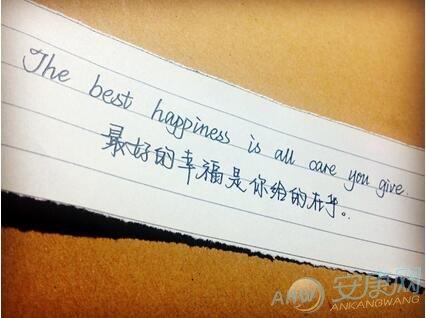 The best happiness is all care you give.
最好的幸福是你给的在乎。
安康网
ANKANGWANG